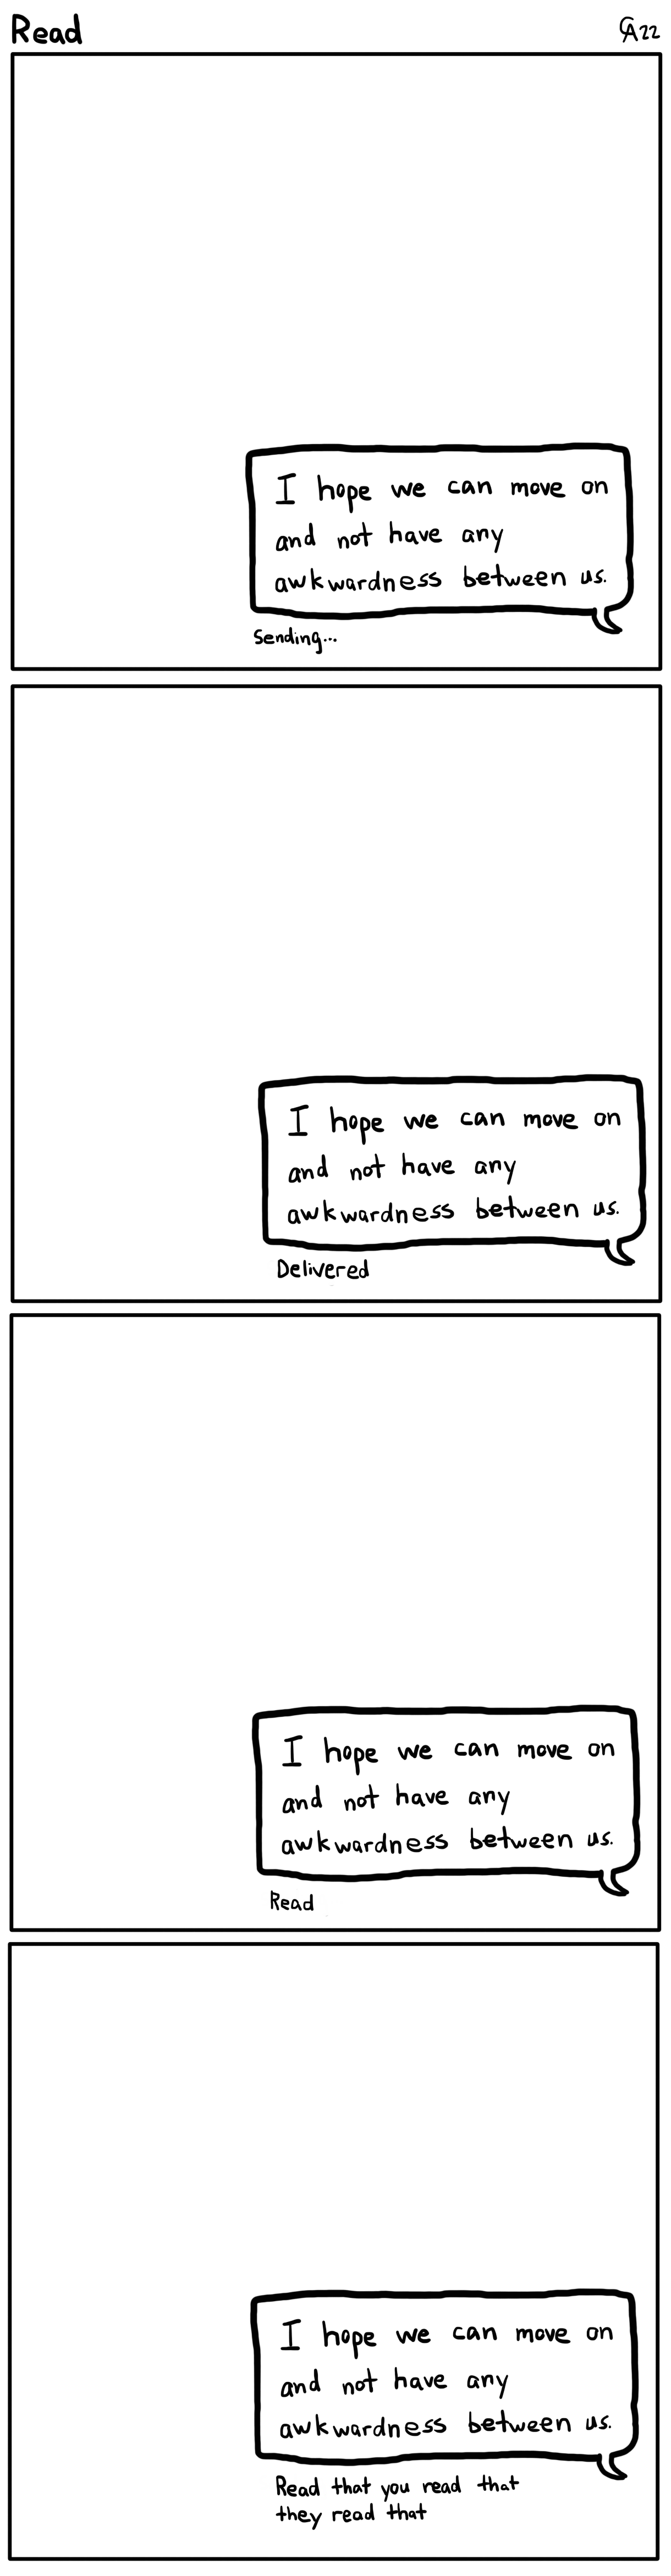 Read
CA22
I hope we can move on
and not have any
awkwardness between us.
Sending...
I hope we can move on
and not have any
awkwardness between us.
Delivered
I hope we can move on
and not have any
awkwardness between us.
Read
I hope we can move on
and not have any
awkwardness between us.
Read that you read that
they read that